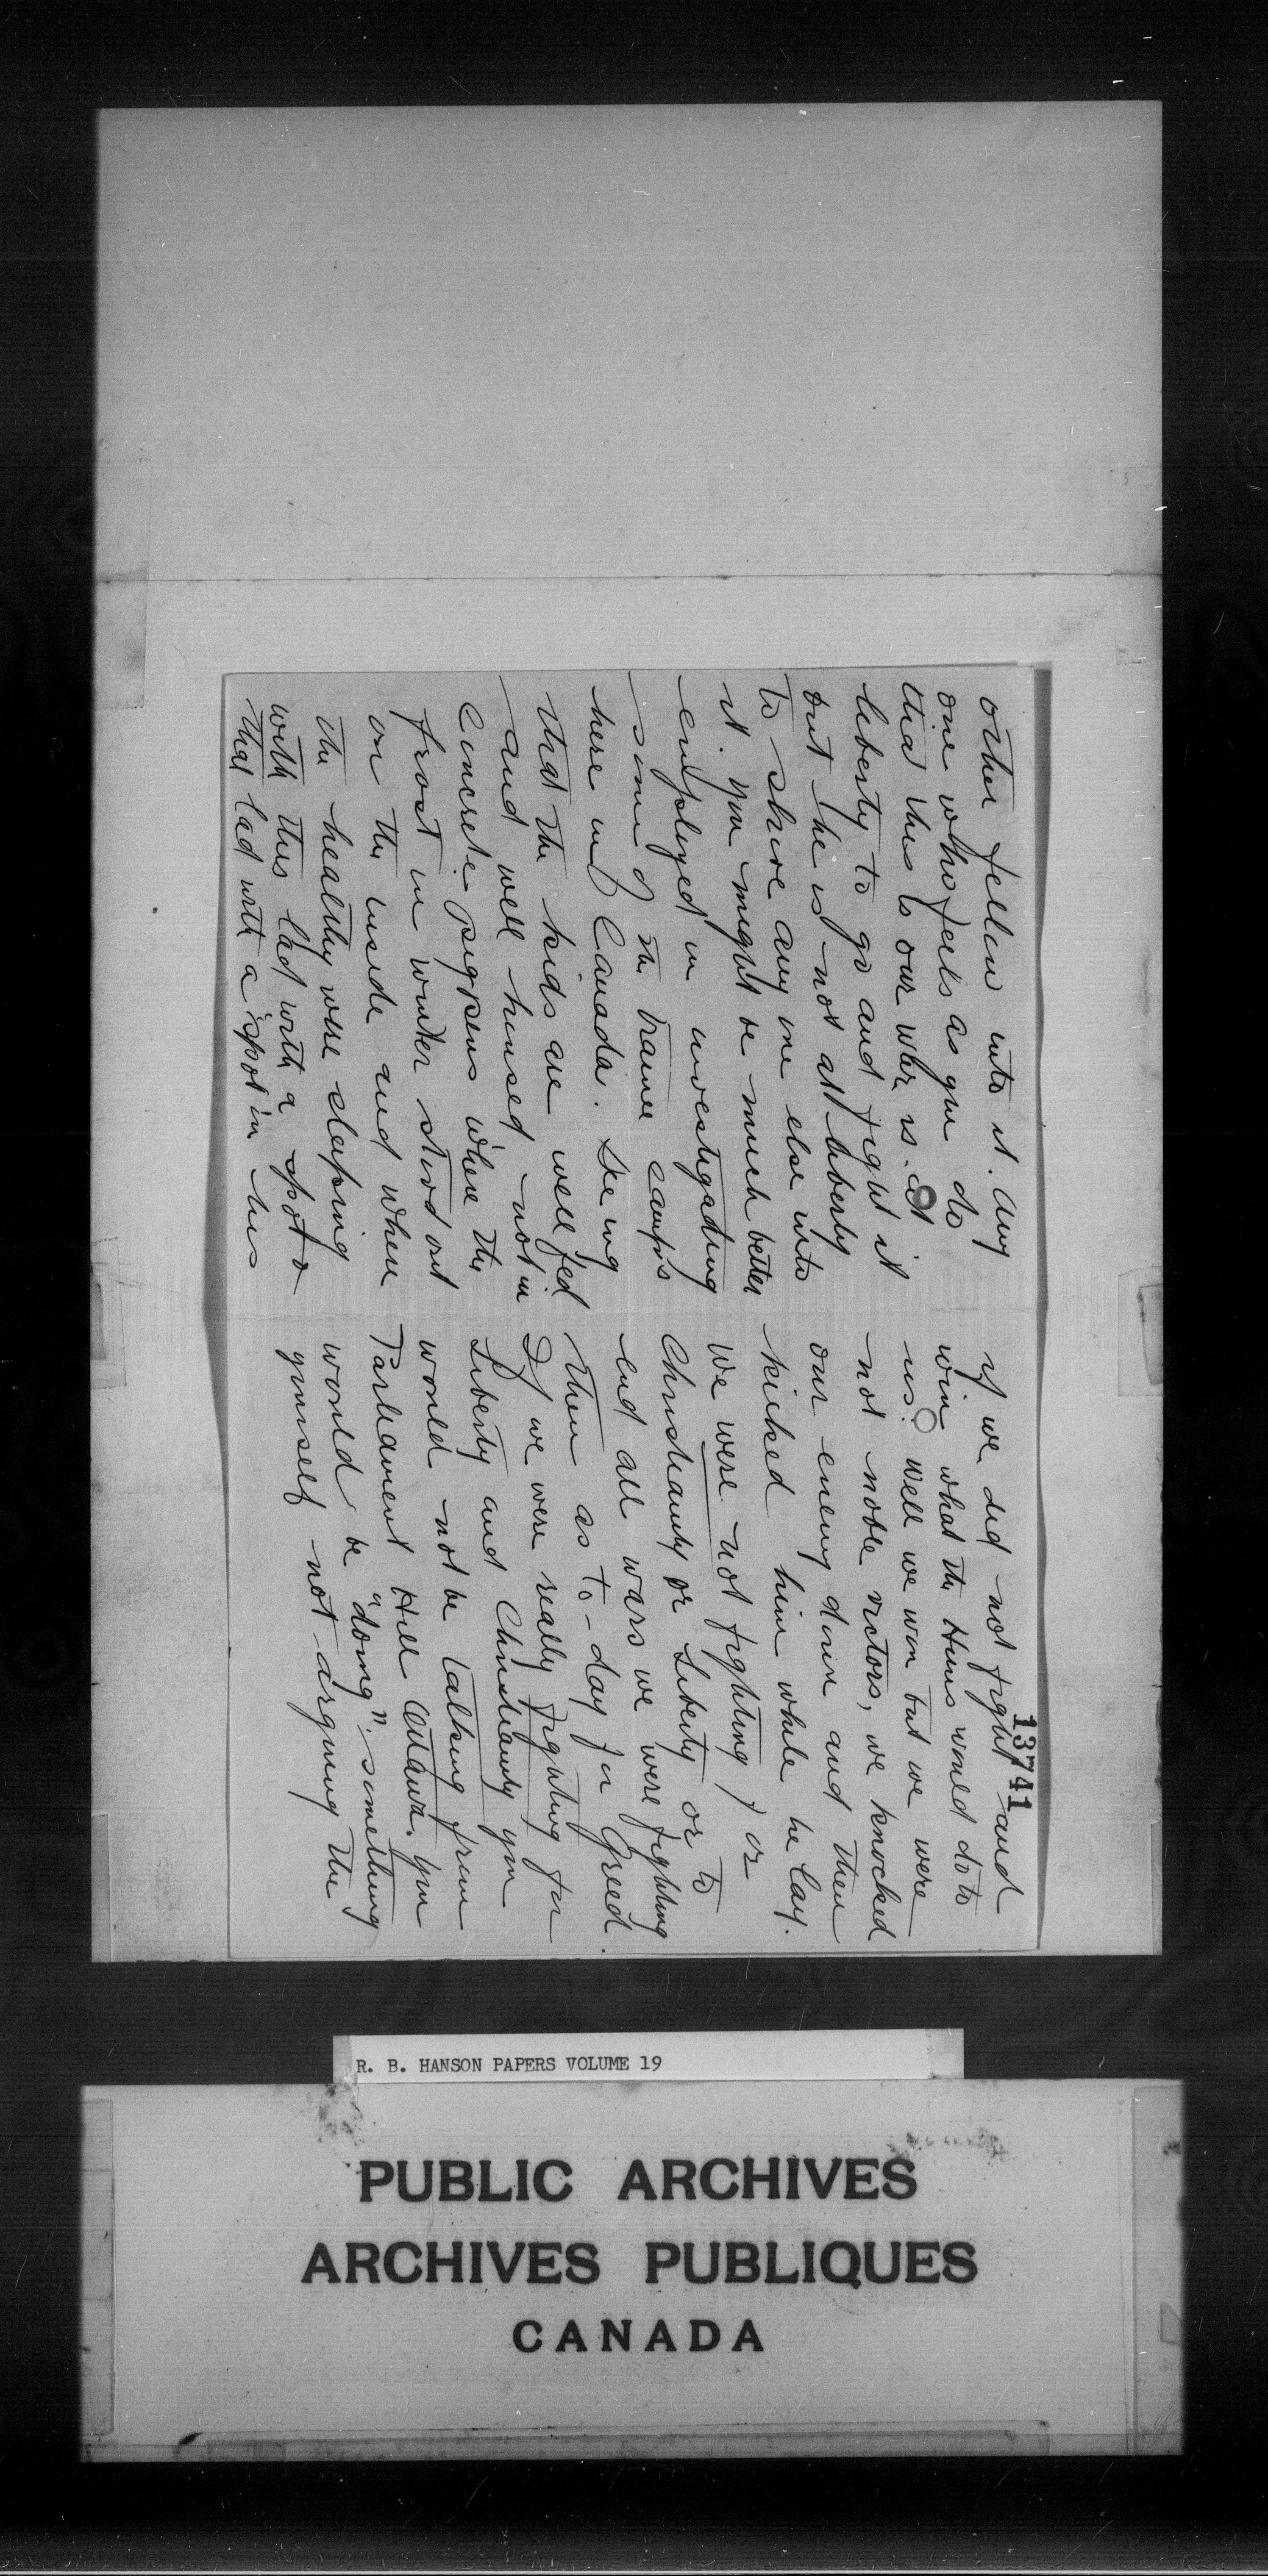 other fellow into it. Any
one who feels as you do
that this is our war is at
liberty to go and fight it
but he is not at liberty
to shove any one else into
it. You might be much better
employed in investigating
some of the trainee camps
here in Canada. Seeing
that the kids are well fed
and well housed, not in
concrete pigpens where the
frost in winter stood out
on the inside and where
the healthy were sleeping
with this lad with a spot &
that lad with a spot in his
13741
if we did not fight and
win what the Huns would do to
us. Well we won but we were
not noble victors, we knocked
our enemy down and then
kicked him while he lay.
We were not fighting for
Christianity or Liberty or to
end all wars we were fighting
then as to-day for Greed.
If we were really fighting for
Liberty and Christianity you
would not be talking from
Parliament Hill Ottawa. You
would be "doing" something
yourself not arguing the
R. B. HANSON PAPERS VOLUME 19
PUBLIC ARCHIVES
ARCHIVES PUBLIQUES
CANADA